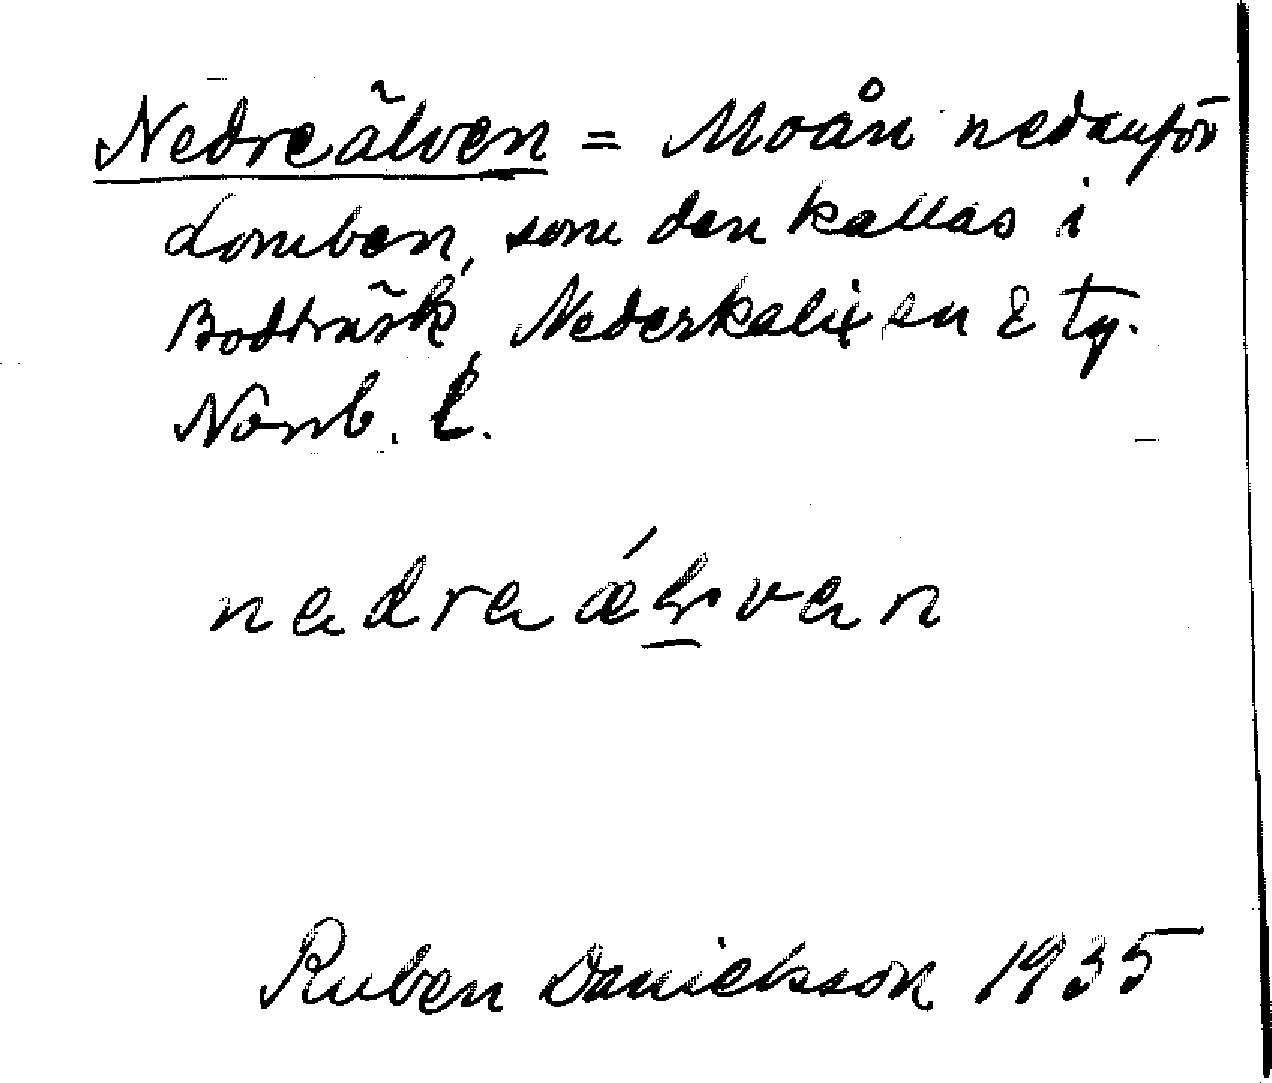 Nedreälven = Moån nedanför
Lomben, som den kallas i
Bodträsk, Nederkalix sn & tg.
Norrb. l.
nedreælven
Ruben Danielsson 1935